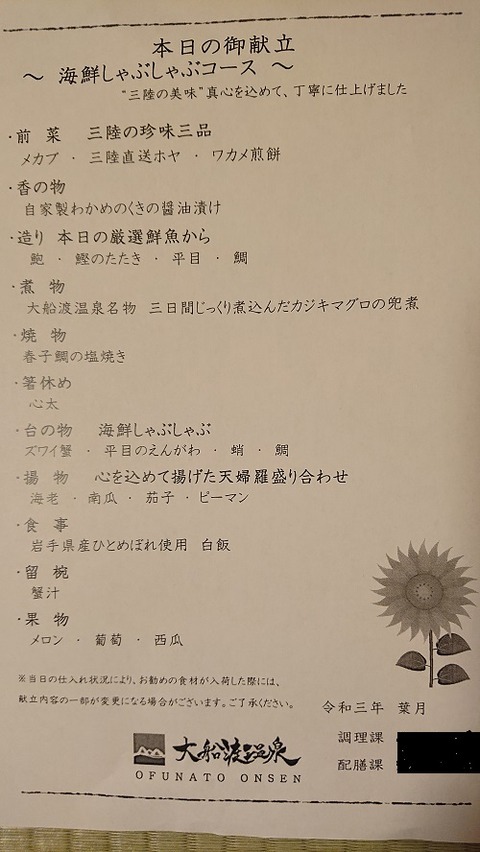 本日の御献立
～ 海鮮しゃぶしゃぶコース ～
“三陸の美味”真心を込めて、丁寧に仕上げました
・前　菜　三陸の珍味三品
メカブ ・ 三陸直送ホヤ ・ ワカメ煎餅
・香の物
自家製わかめのくきの醤油漬け
・造り 本日の厳選鮮魚から
鮑 ・ 鰹のたたき ・ 平目 ・ 鯛
・煮　物
大船渡温泉名物 三日間じっくり煮込んだカジキマグロの兜煮
・焼　物
春子鯛の塩焼き
・箸休め
心太
・台の物　海鮮しゃぶしゃぶ
ズワイ蟹 ・ 平目のえんがわ ・ 蛸 ・ 鯛
・揚　物　心を込めて揚げた天婦羅盛り合わせ
海老 ・ 南瓜 ・ 茄子 ・ ピーマン
・食　事
岩手県産ひとめぼれ使用 白飯
・留　椀
蟹汁
・果　物
メロン ・ 葡萄 ・ 西瓜
※当日の仕入れ状況により、お勧めの食材が入荷した際には、
献立内容の一部が変更になる場合がございます。ご了承ください。
令和三年 葉月
調理課
配膳課
大船渡温泉
OFUNATO ONSEN